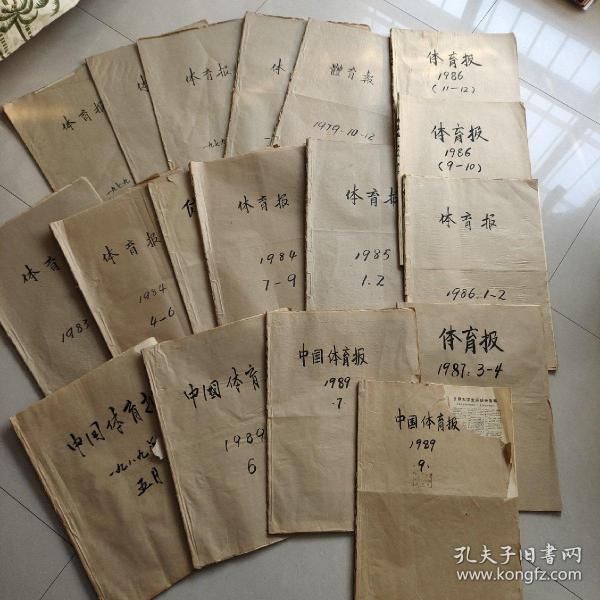 体育报
一九七九
体
体育报
一九七九
体
體育报
1979.10-12
体育报
1986
(11-12)
体育报
1986
(9-10)
体育
1983
体育报
1984
4-6
体育报
1984
7-9
体育报
1985
1.2
体育报
1986.1-2
体育报
1987.3-4
中国体育报
一九八九
五月
中國体育
1989
6
中国体育报
1989
.7
中国体育报
1989
.9.
孔夫子旧书网
www.kongfz.com